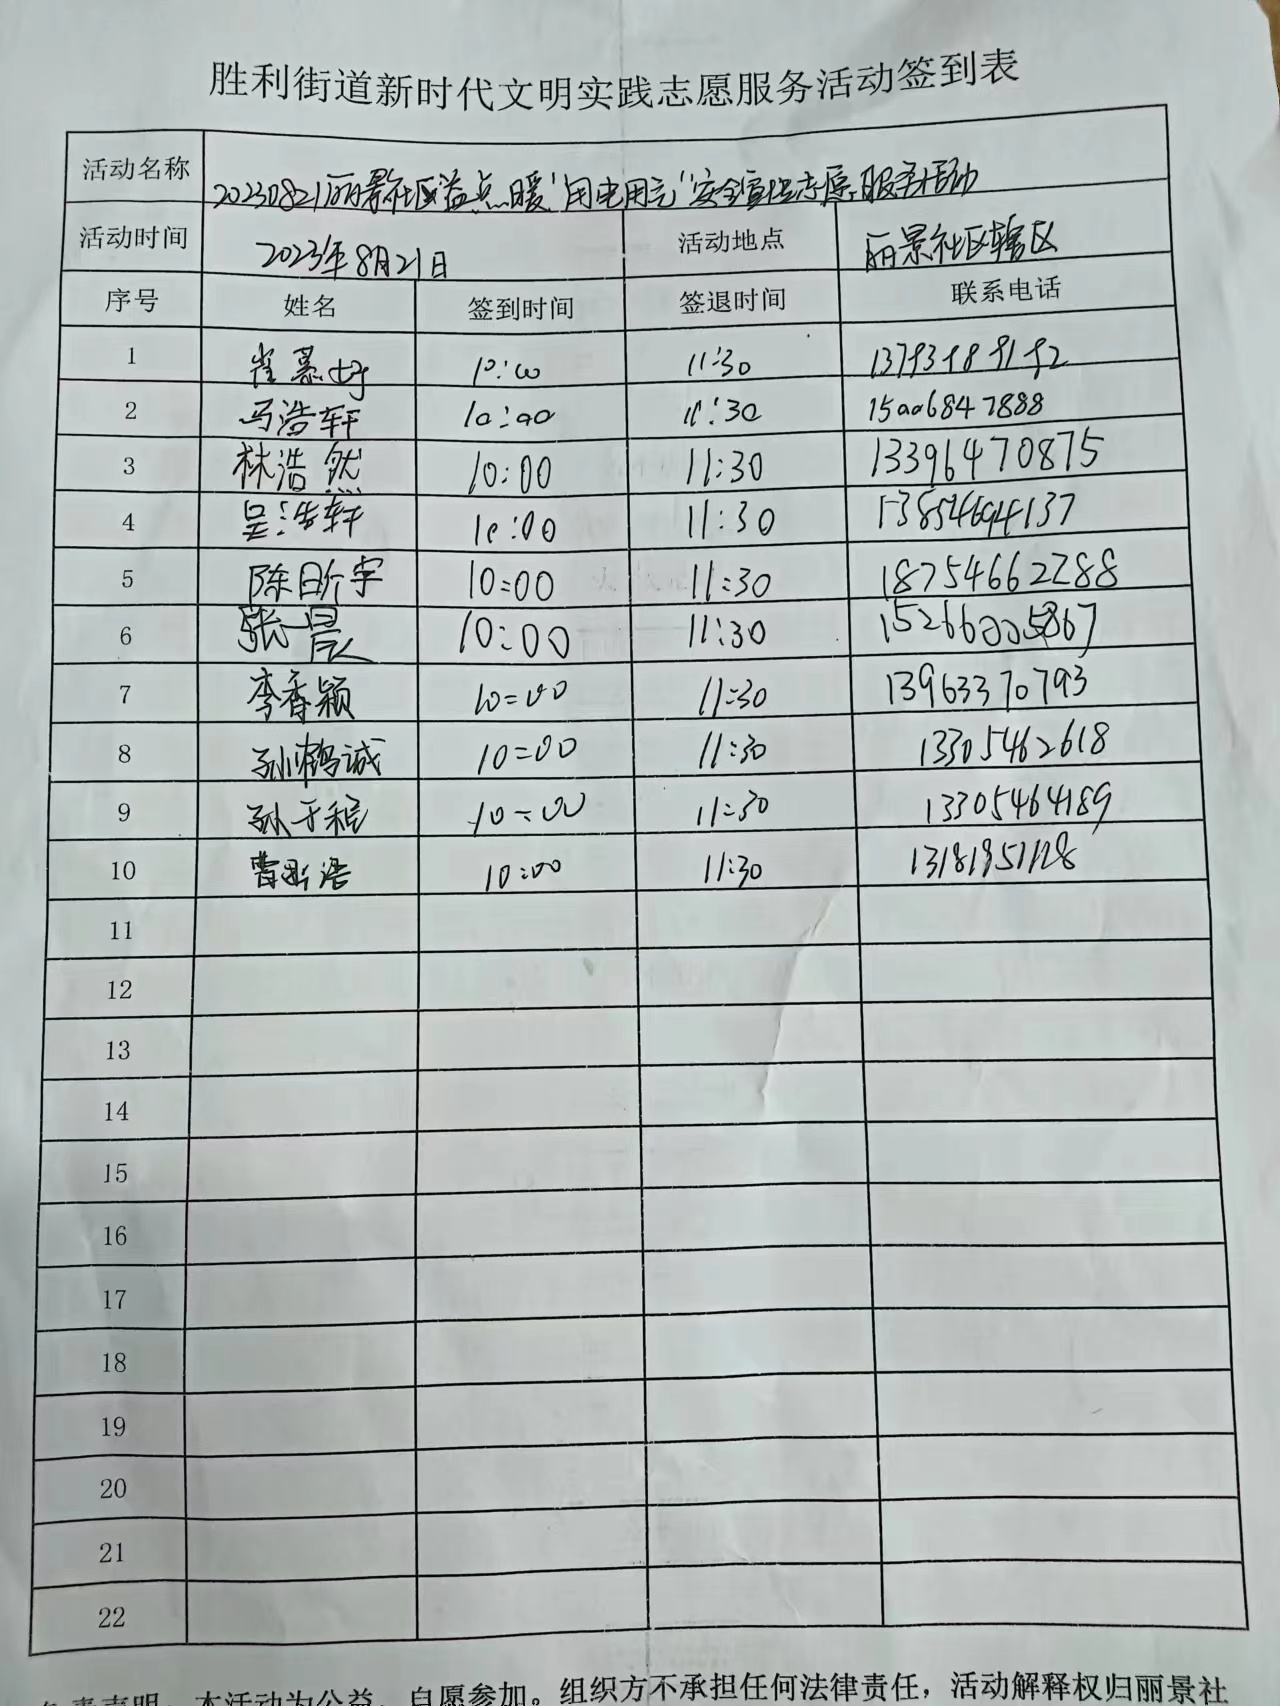 胜利街道新时代文明实践志愿服务活动签到表
活动名称 20230821丽景社区益点暖"用电用气"安全宣传志愿服务活动
活动时间 2023年8月21日 活动地点 丽景社区辖区
序号 姓名 签到时间 签退时间 联系电话
1 崔慕 10:00 11:30
2 马浩轩 10:00 11:30 15006847888
3 林浩然 10:00 11:30 13396470875
4 吴浩轩 10:00 11:30 13854694137
5 陈昕宇 10:00 11:30 18754662288
6 张一晨 10:00 11:30 15266005867
7 李香颖 10:00 11:30 13963370793
8 孙鹤诚 10:00 11:30 13305462618
9 孙于程 10:00 11:30 13305464189
10 曹 浩 10:00 11:30
11
12
13
14
15
16
17
18
19
20
21
22
责声明：本活动为公益，自愿参加。组织方不承担任何法律责任，活动解释权归丽景社